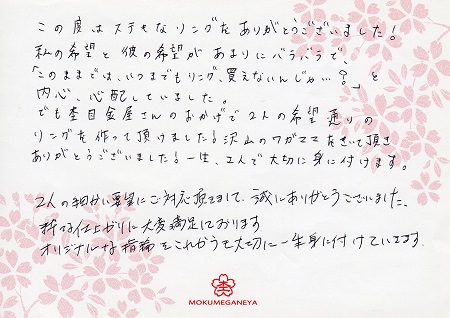 この度はステキなリングをありがとうございました！
私の希望と彼の希望があまりにバラバラで、
「このままでは、いつまでもリング、買えないんじゃ…？」と
内心、心配していました。
でも杢目金屋さんのおかげで2人の希望通りの
リングを作って頂けました！沢山のワガママをきいて頂き
ありがとうございました！一生、2人で大切に身に付けます。
2人の細かい要望にご対応頂きまして、誠にありがとうございました。
粋な仕上がりに大変満足しております
オリジナルな指輪をこれからも大切に一生身に付けていきます。
MOKUMEGANEYA